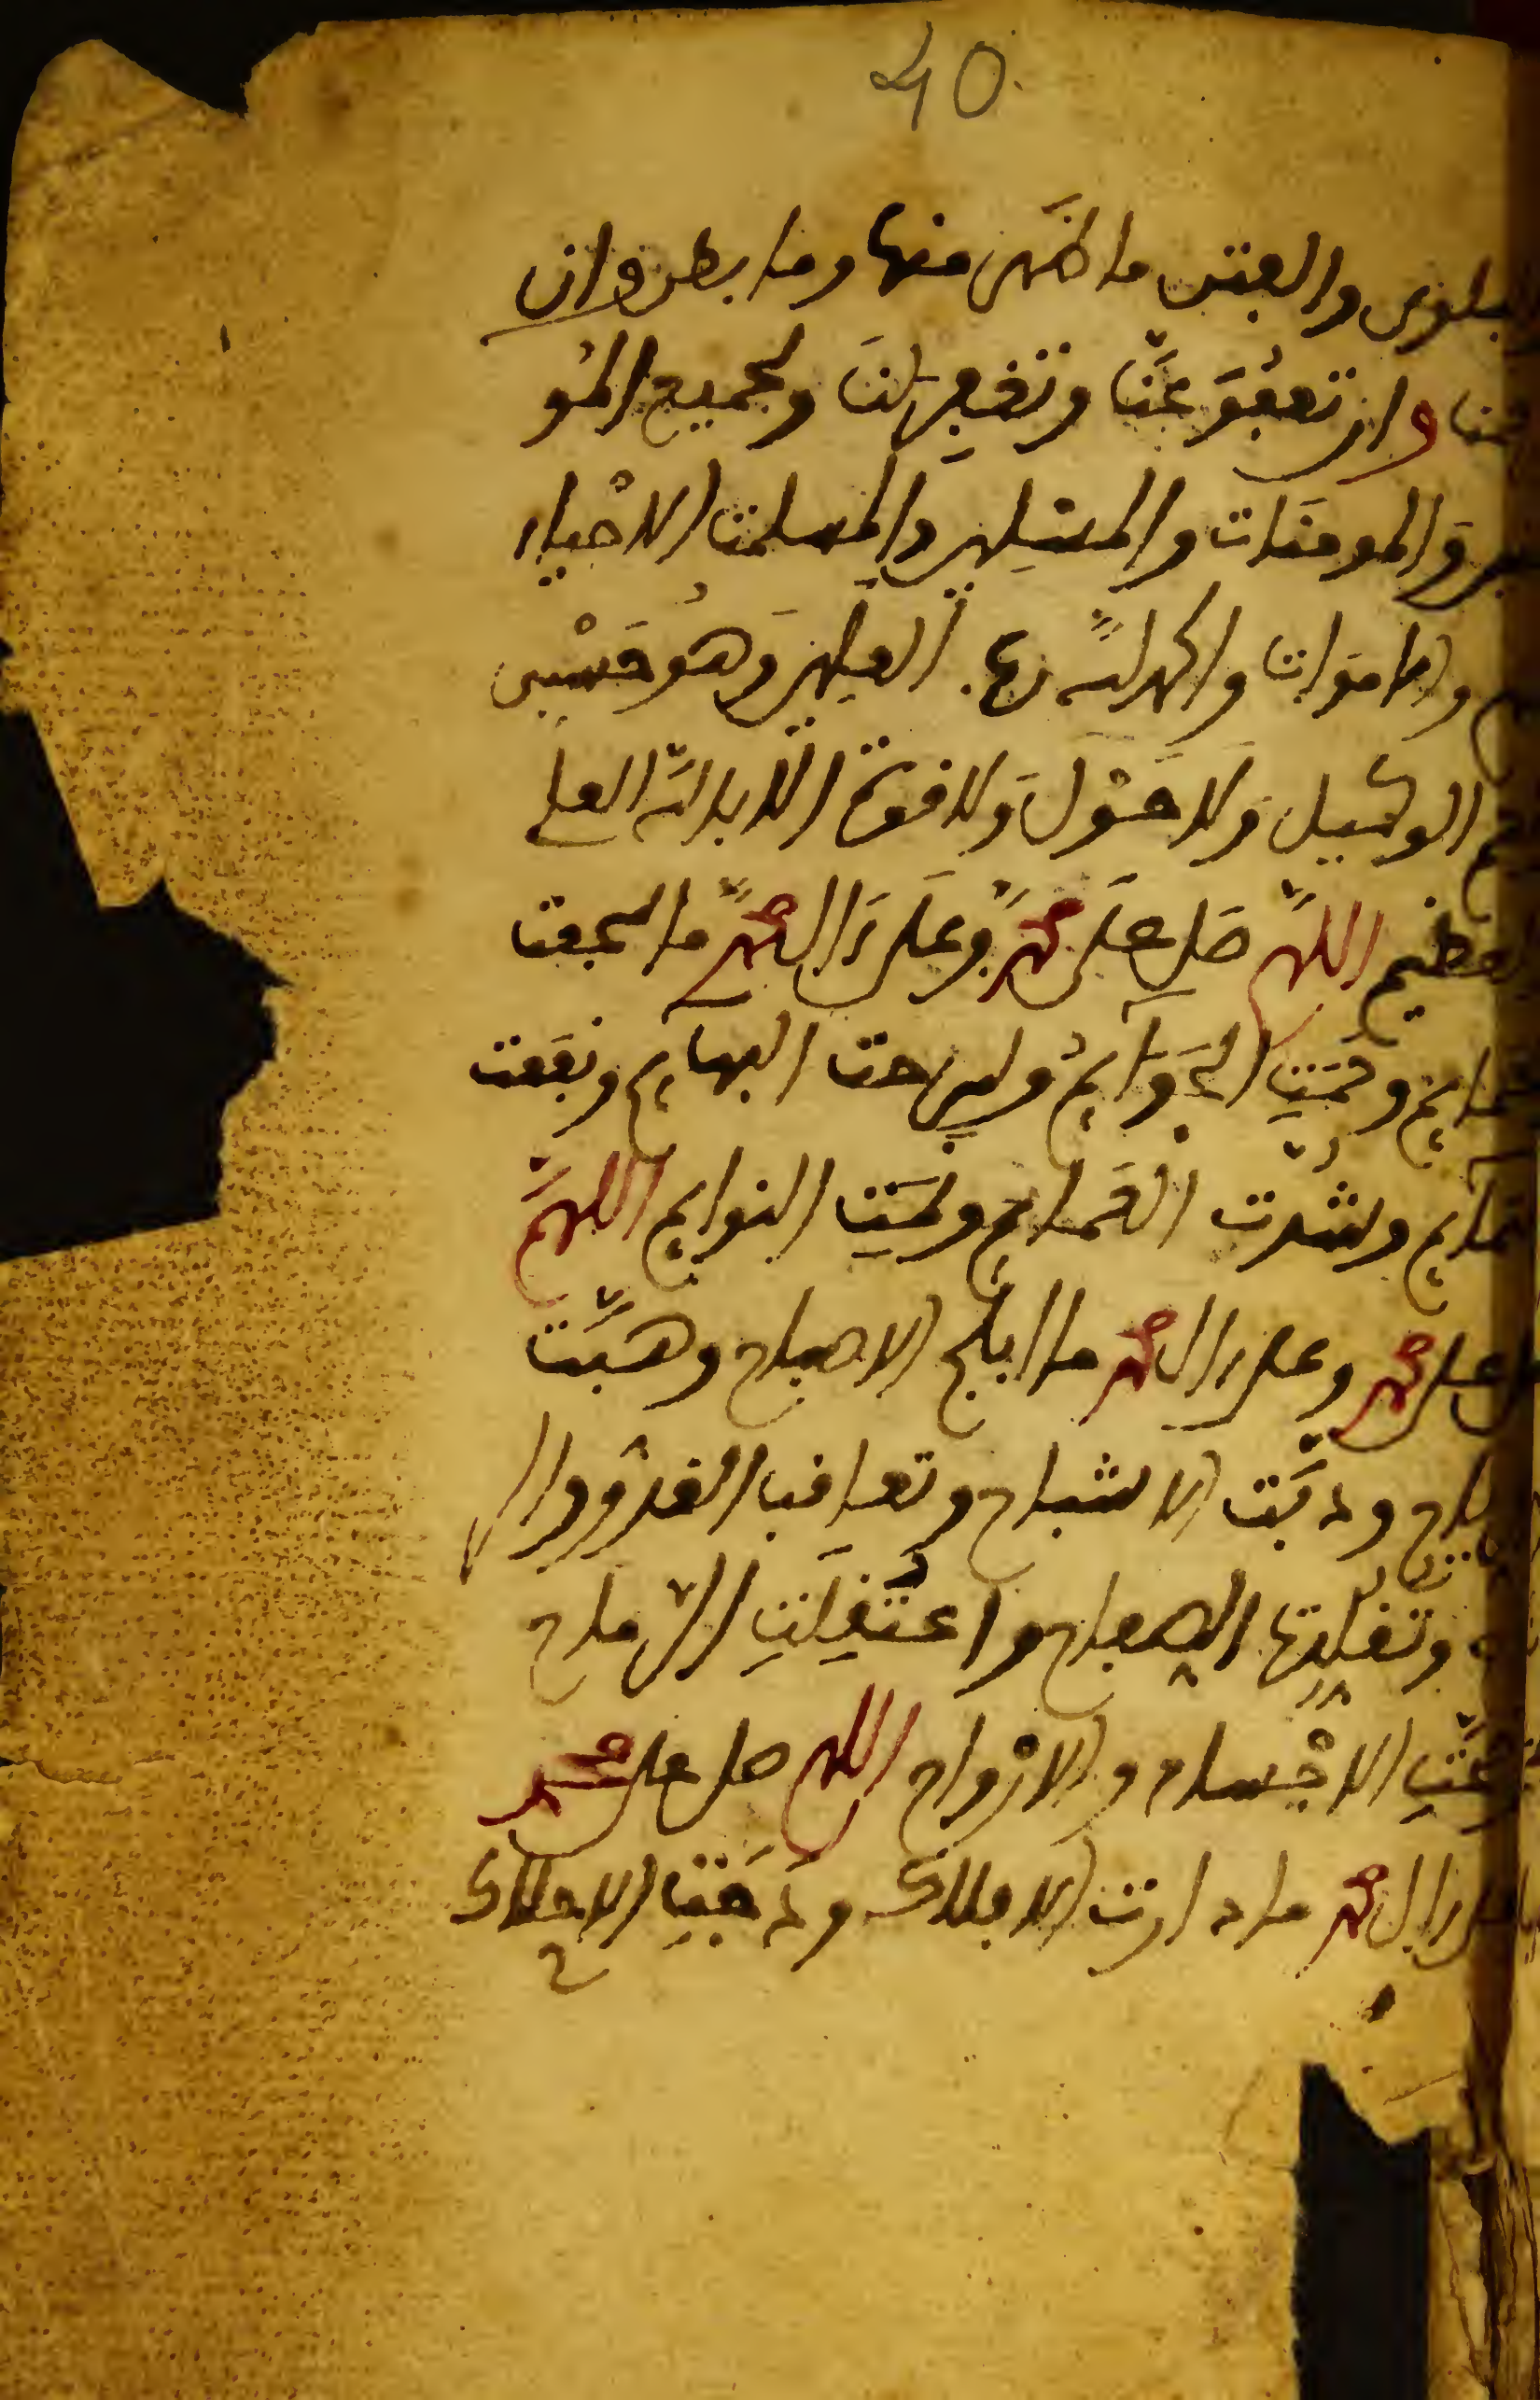 40
بلوى والفتن ما ظهر منها وما بطن وان
حمنا وان تعفو عنا وتغفر لنا ولجميع المو
نين والمومنات والمسلمين والمسلمت الاحياء
والاموات والحمد لله رب العلمين وهو حسبي
الوكيل ولا حول ولا قوة الا بالله العلي
العظيم اللهم صل على محمد وعلى ءال محمد ما سجعت
الحمايم وحمت الحوايم وسرحت البهايم ونفعت
التمايم وشدت العمايم ونمت النوايم اللهم
صل على محمد وعلى ءال محمد ما ابلج الاصباح وهبت
الرياح ودبت الاشباح وتعاقب الغدو وال
وتقلدت الصفاح واعتقلت الرماح
وصحت الاجساد والارواح اللهم صل على محمد
وعلى ءال محمد ما دارت الافلاك ودجت الاحلاك